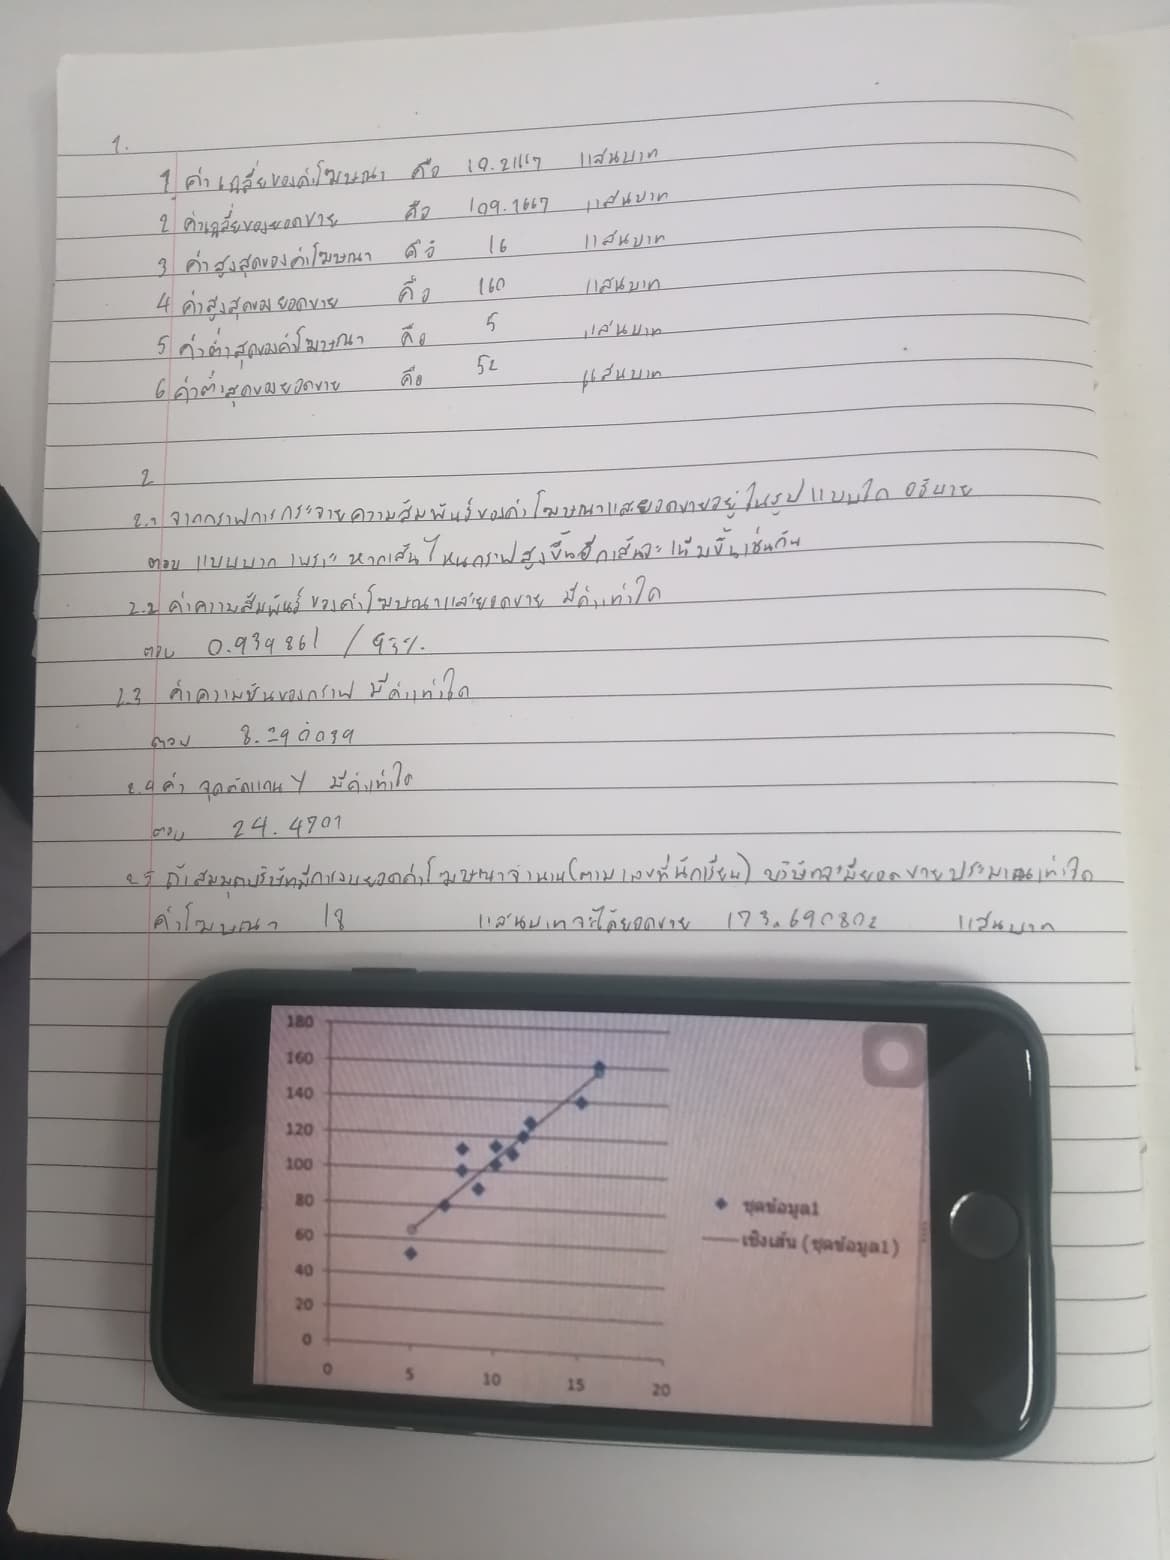 1.
1 ค่าเฉลี่ยของค่าโฆษณา คือ 10.2167 แสนบาท
2 ค่าเฉลี่ยของยอดขาย คือ 109.1667 แสนบาท
3 ค่าสูงสุดของค่าโฆษณา คือ 16 แสนบาท
4 ค่าสูงสุดของยอดขาย คือ 160 แสนบาท
5 ค่าต่ำสุดของค่าโฆษณา คือ 5 แสนบาท
6 ค่าต่ำสุดของยอดขาย คือ 52 แสนบาท
2
2.1 จากกราฟการกระจายความสัมพันธ์ของค่าโฆษณาและยอดขายอยู่ในรูปแบบใด อธิบาย
ตอบ แบบบวก เพราะ หากเส้นไหนกราฟสูงขึ้นอีกเส้นจะเพิ่มขึ้นเช่นกัน
2.2 ค่าความสัมพันธ์ของค่าโฆษณาและยอดขาย มีค่าเท่าใด
ตอบ 0.939861 / 93%
2.3 ค่าความชันของกราฟ มีค่าเท่าใด
ตอบ 8.290039
2.4 ค่า จุดตัดแกน Y มีค่าเท่าใด
ตอบ 24.4701
2.5 ถ้าสมมุติบริษัทมีการลงยอดค่าโฆษณาจำนวน(ตามเลขที่นักเรียน) บริษัทจะมียอดขายประมาณเท่าใด
ค่าโฆษณา 18 แสนบาทจะได้ยอดขาย 173.690802 แสนบาท
180
160
140
120
100
80
60
40
20
0
0 5 10 15 20
ชุดข้อมูล1
เชิงเส้น (ชุดข้อมูล1)